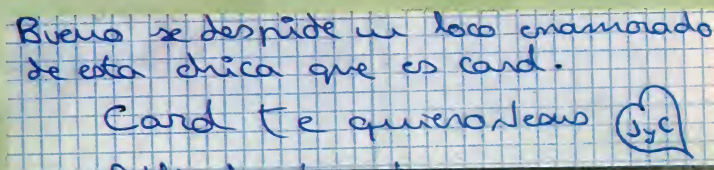 Bueno se despide un loco enamorado
de esta chica que es Carol.
Carol te quiero Jesus JyC